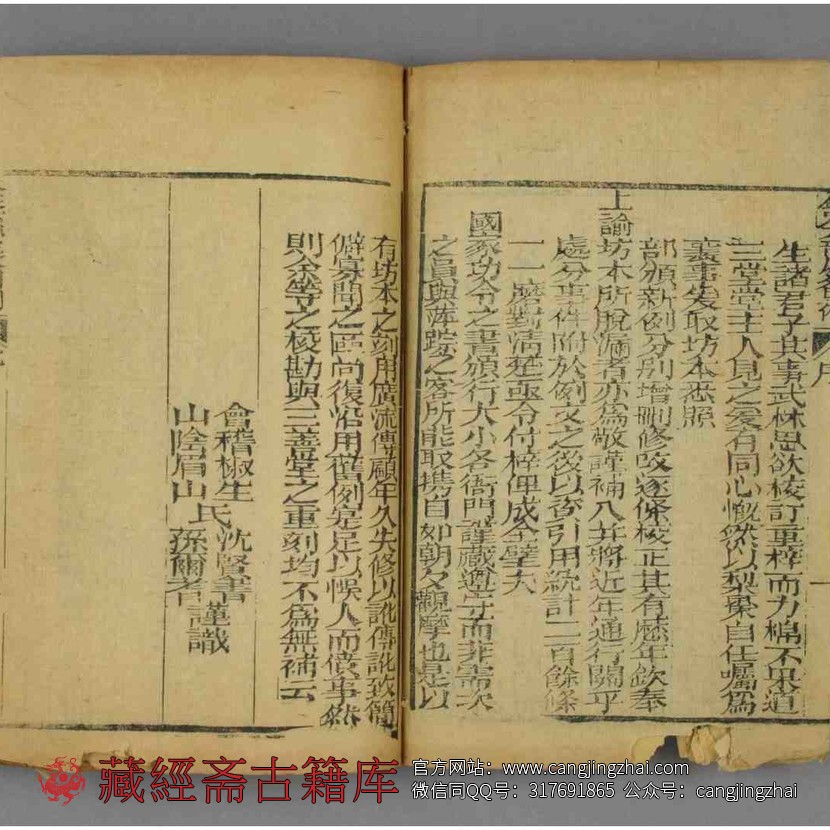 生諸君子共事武林思欲校訂重梓而力棉不果適
三堂堂主人見之爰有同心慨然以梨棗自任囑為
襄事先取坊本悉照
部頒新例分別增刪修改逐條校正其有歷年欽奉
上諭坊本所脫漏者亦為敬謹補入并將近年通行關乎
處分事件附於例文之後以資引用統計二百餘條
一一磨對清楚亟令付梓俾成全璧夫
國家功令之書頒行大小各衙門謹藏遵守而非需次
之員與萍蹤之客所能取攜自如朝夕觀摩也是以
有坊本之刻用廣流傳顧年久失修以訛傳訛致簡
僻寡聞之區尚復沿用舊例寔足以悞人而僨事然
則余等之校勘與三善堂之重刻均不為無補云
會稽椒生氏沈賢書
山陰眉山 孫爾耆
謹識
藏經斋古籍库
官方网站：www.cangjingzhai.com
微信同QQ号：317691865 公众号：cangjingzhai